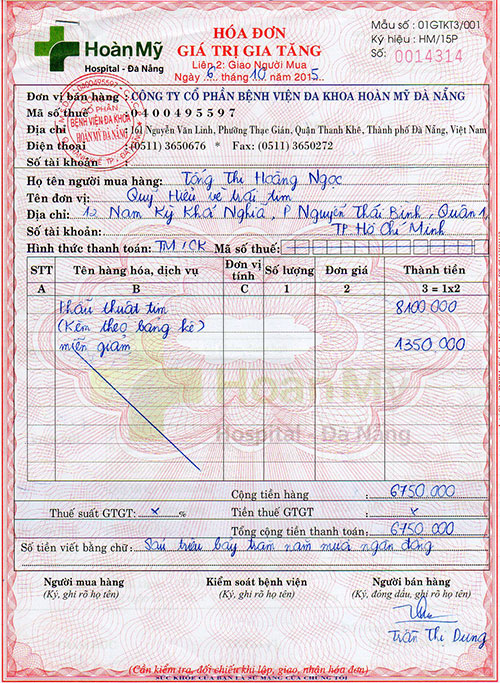 Hoàn Mỹ
Hospital - Đà Nẵng
HÓA ĐƠN
GIÁ TRỊ GIA TĂNG
Liên 2: Giao Người Mua
Ngày 6 tháng 10 năm 2015
Mẫu số : 01GTKT3/001
Ký hiệu : HM/15P
Số: 0014314
Đơn vị bán hàng : CÔNG TY CỔ PHẦN BỆNH VIỆN ĐA KHOA HOÀN MỸ ĐÀ NẴNG
Mã số thuế : 0400495597
Địa chỉ : 161 Nguyễn Văn Linh, Phường Thạc Gián, Quận Thanh Khê, Thành phố Đà Nẵng, Việt Nam
Điện thoại : (0511) 3650676 * Fax: (0511) 3650272
Số tài khoản
CỔ PHẦN
BỆNH VIỆN ĐA KHOA
HOÀN MỸ ĐÀ NẴNG
Họ tên người mua hàng: Tống Thị Hoàng Ngọc
Tên đơn vị: Quỹ Hiểu về trái tim
Địa chỉ: 12 Nam Kỳ Khởi Nghĩa, P Nguyễn Thái Bình, Quận 1,
Số tài khoản: TP Hồ Chí Minh
Hình thức thanh toán: TM/CK Mã số thuế:
STT Tên hàng hóa, dịch vụ Đơn vị tính Số lượng Đơn giá Thành tiền
A B C 1 2 3 = 1x2
Phẫu thuật tim 8100000
(Kèm theo bảng kê)
miễn giảm 1350,000
Hoàn Mỹ
Hospital - Đà Nẵng
Cộng tiền hàng : 6750.000
Thuế suất GTGT: x % Tiền thuế GTGT : x
Tổng cộng tiền thanh toán: 6750.000
Số tiền viết bằng chữ: Sáu triệu bảy trăm năm mươi ngàn đồng
Người mua hàng Kiểm soát bệnh viện Người bán hàng
(Ký, ghi rõ họ tên) (Ký, ghi rõ họ tên) (Ký, đóng dấu, ghi rõ họ tên)
Trần Thị Dung
(Cần kiểm tra, đối chiếu khi lập, giao, nhận hóa đơn)
SỨC KHỎE CỦA BẠN LÀ SỨ MẠNG CỦA CHÚNG TÔI